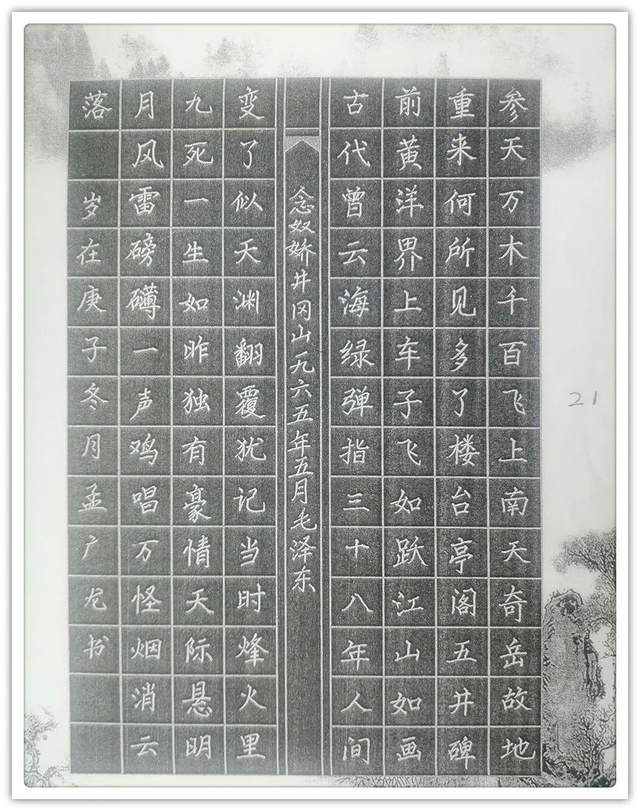 参天万木千百飞上南天奇岳故地
重来何所见多了楼台亭阁五井碑
前黄洋界上车子飞如跃江山如画
古代曾云海绿弹指三十八年人间
念奴娇井冈山一九六五年五月毛泽东
变了似天渊翻覆犹记当时烽火里
九死一生如昨独有豪情天际悬明
月风雷磅礴一声鸡唱万怪烟消云
落 岁在庚子冬月孟广龙书
21